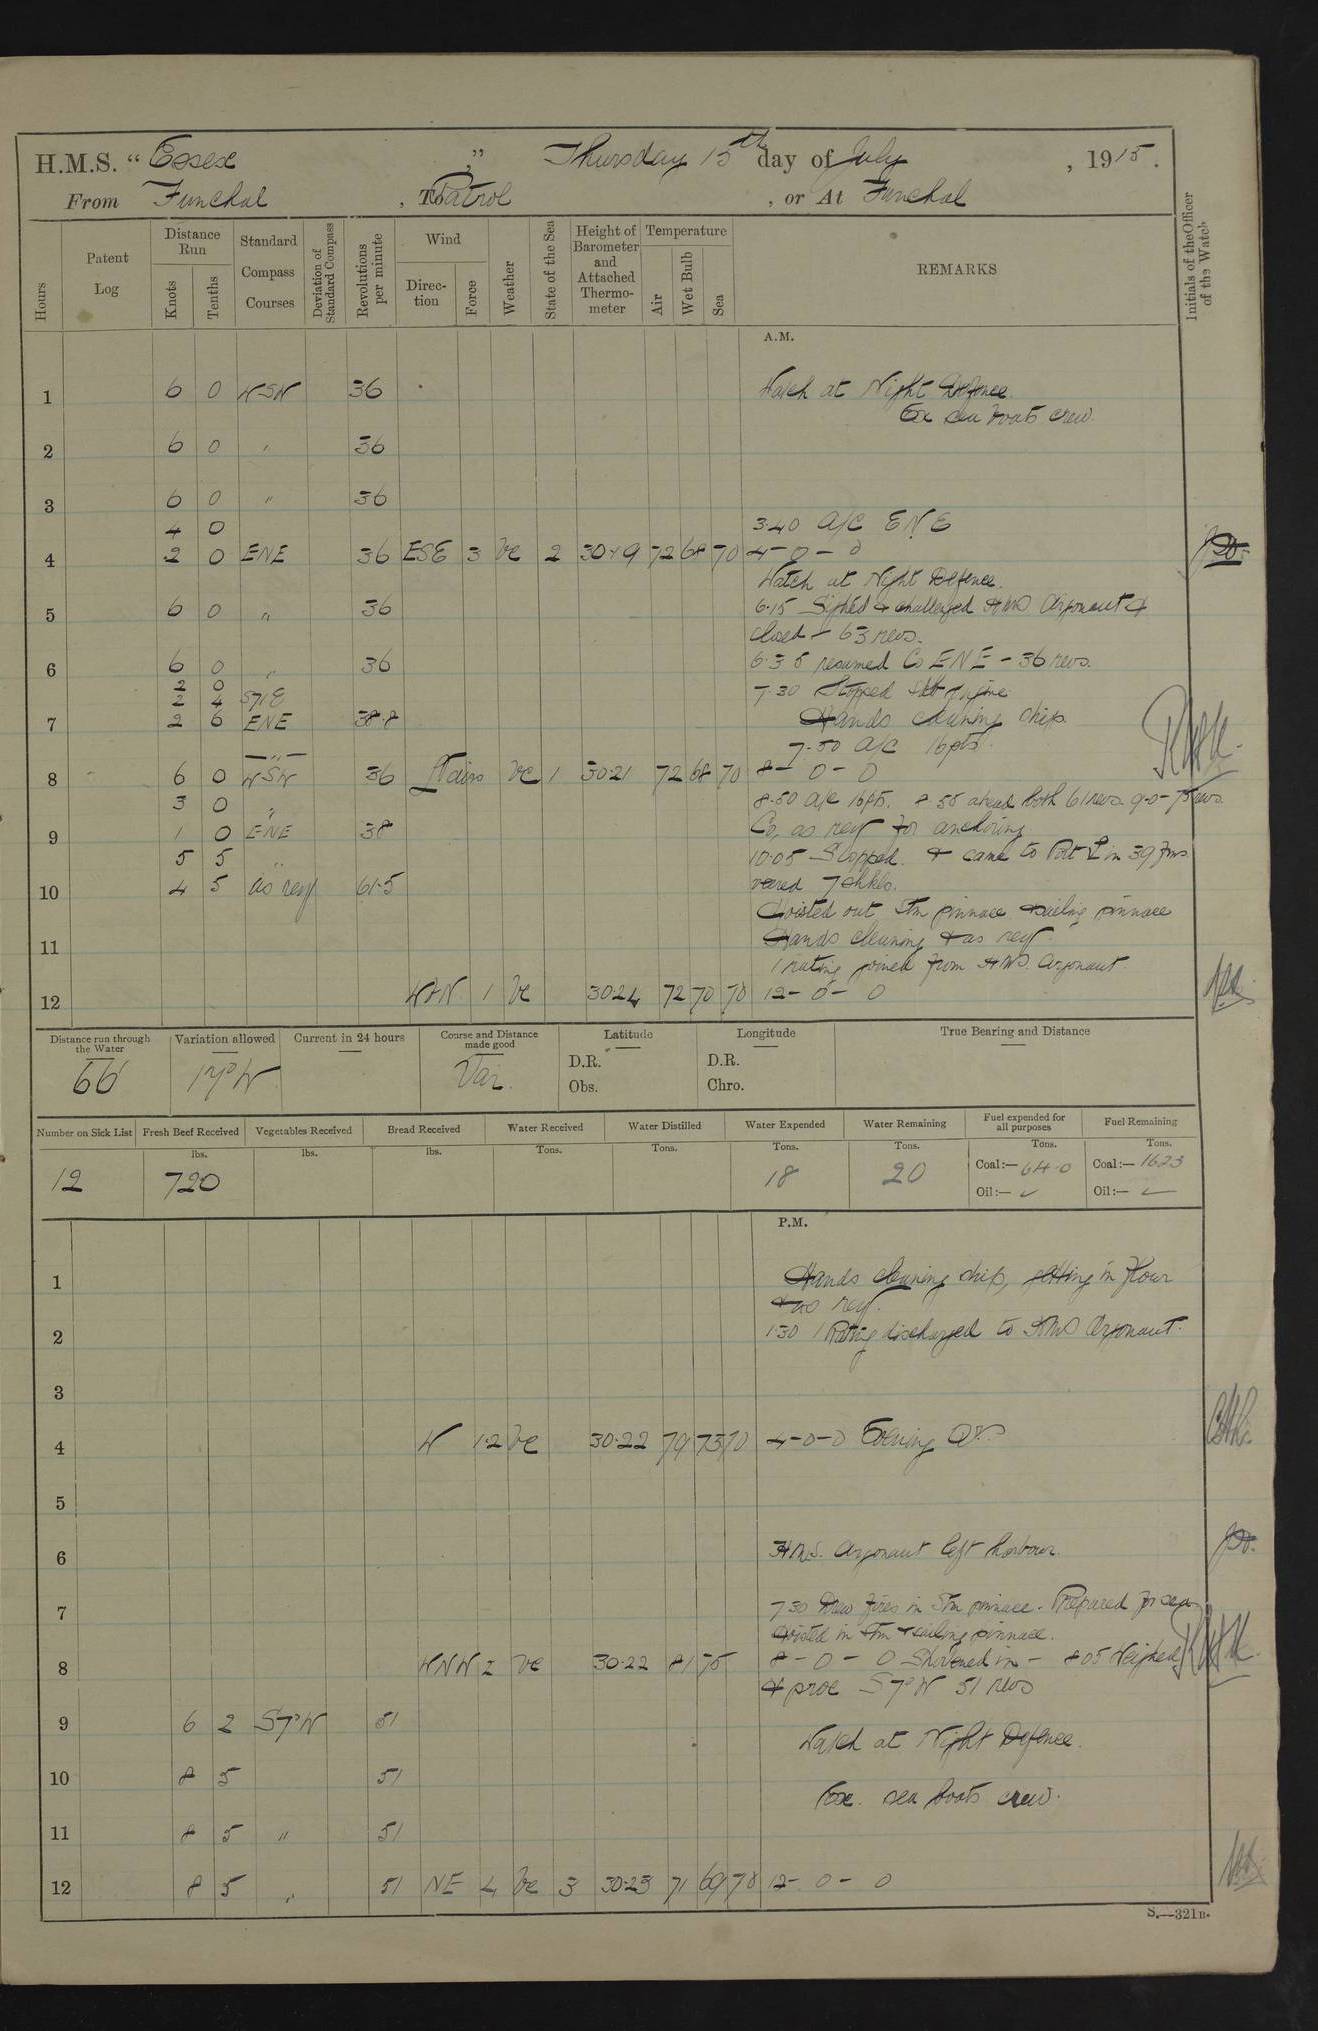 H.M.S. "Essex", Thursday 15th day of July, 1915.
From Funchal, To Patrol, or At Funchal
Hours
Patent Log
Distance Run
Knots
Tenths
Standard Compass Courses
Deviation of Standard Compass
Revolutions per minute
Wind
Direction
Force
Weather
State of the Sea
Height of Barometer and Attached Thermometer
Temperature
Air
Wet Bulb
Sea
REMARKS
Initials of the Officer of the Watch
A.M.
1 6 0 WSW 36 Watch at Night Defence.
Ex sea boats crew.
2 6 0 " 36
3 6 0 " 36
4 0 3.40 A/C ENE
4 2 0 ENE 36 ESE 3 bc 2 30.19 72 68 70 4-0-0
Watch at Night Defence.
5 6 0 " 36 6.15 Sighted & challenged HMS Argonaut &
closed - 63 revs.
6 6 0 " 36 6.35 resumed Co ENE - 36 revs.
2 0
2 4 S71E 7.30 Stopped Stbd Engine
7 2 6 ENE 38.8 Hands cleaning ship.
" 7.50 A/C 16pts.
8 6 0 WSW 36 Airs bc 1 30.21 72 68 70 8-0-0
3 0 " 8.50 A/c 16pts. 8.55 ahead both 61 revs. 9-0-75 revs.
9 1 0 ENE 38 Co, as req for anchoring
5 5 " 10.05 Stopped. & came to Port in 39 fms
10 4 5 as req 61.5 veered 7 shkls.
Hoisted out Stm pinnace sailing pinnace
11 Hands cleaning & as req.
1 rating joined from HMS. Argonaut.
12 WbN 1 bc 30.24 72 70 70 12-0-0
Distance run through the Water
66
Variation allowed
17° W
Current in 24 hours
Course and Distance made good
Var.
Latitude
D.R.
Obs.
Longitude
D.R.
Chro.
True Bearing and Distance
Number on Sick List
12
Fresh Beef Received
lbs.
720
Vegetables Received
lbs.
Bread Received
lbs.
Water Received
Tons.
Water Distilled
Tons.
Water Expended
Tons.
18
Water Remaining
Tons.
20
Fuel expended for all purposes
Tons.
Coal:— 64.0
Oil:—
Fuel Remaining
Tons.
Coal:— 1623
Oil:—
P.M.
1 Hands cleaning ship, getting in flour
& as req.
2 1.30 1 Rating discharged to HMS Argonaut.
3
4 W 1.2 bc 30.22 79 73 70 4-0-0 Evening Qrs
5
6 H.M.S. Argonaut left harbour.
7 7.30 Drew fires in Stm pinnace. Prepared for sea
Hoisted in Stm & sailing pinnace.
8 WNW 2 bc 30.22 81 75 8-0-0 Shortened in - 8.05 Weighed
& proc S7°W 51 revs
9 6 2 S7°W 51 Watch at Night Defence.
10 8 5 51 Exe. sea boats crew.
11 8 5 " 51
12 8 5 " 51 NE 4 bc 3 30.23 71 69 70 12-0-0
S.—321B.